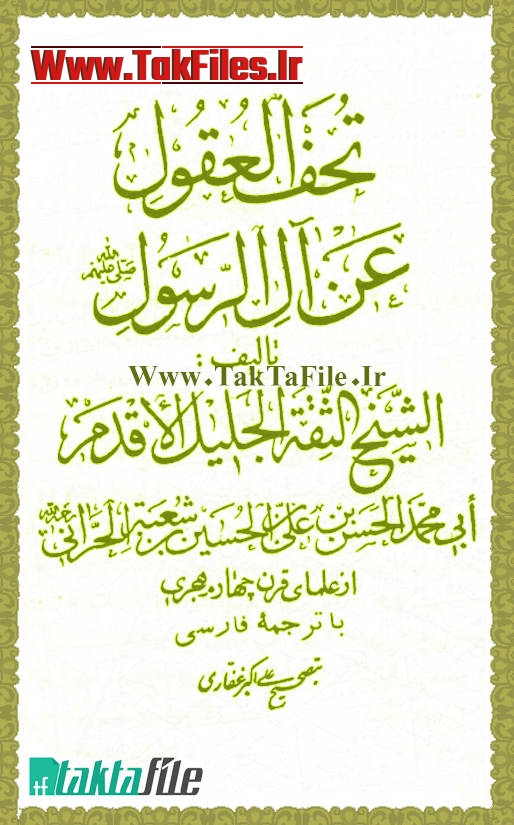 Www.TakFiles.Ir
تُحَفُ الْعُقُولِ
عَنْ آلِ الرَّسُولِ
صَلَّى اللهُ عَلَيْهِمْ
تأليف :
Www.TakTaFile.Ir
الشَّيْخُ الثِّقَةُ الْجَلِيلُ الْأَقْدَمُ
أبي محمد الحسن بن علي بن الحسين بن شعبة الحرّاني
از علمای قرن چهارم هجری
با ترجمهٔ فارسی
بتصحیح علی اکبر غفاری
tf taktafile